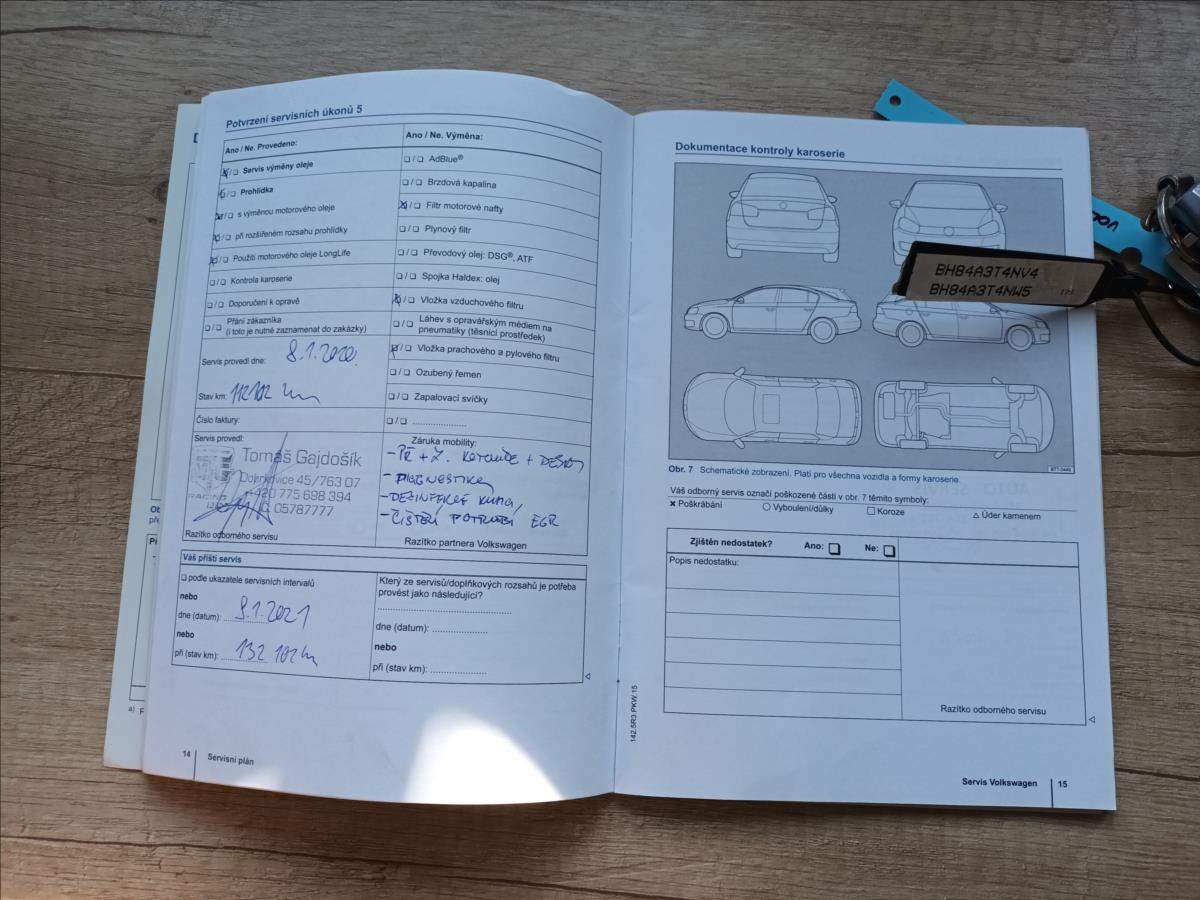 Potvrzení servisních úkonů 5
Ano / Ne. Provedeno:
❏/❏ Servis výměny oleje
❏/❏ Prohlídka
❏/❏ s výměnou motorového oleje
❏/❏ při rozšířeném rozsahu prohlídky
❏/❏ Použití motorového oleje LongLife
❏/❏ Kontrola karoserie
❏/❏ Doporučení k opravě
❏/❏ Přání zákazníka
(i toto je nutné zaznamenat do zakázky)
Servis provedl dne: 8.1.2020
Stav km: 112102 km
Číslo faktury:
Servis provedl:
Tomáš Gajdošík
45/763 07
+420 775 698 394
05787777
Razítko odborného servisu
Ano / Ne. Výměna:
❏/❏ AdBlue®
❏/❏ Brzdová kapalina
❏/❏ Filtr motorové nafty
❏/❏ Plynový filtr
❏/❏ Převodový olej: DSG®, ATF
❏/❏ Spojka Haldex: olej
❏/❏ Vložka vzduchového filtru
❏/❏ Láhev s opravářským médiem na
pneumatiky (těsnicí prostředek)
❏/❏ Vložka prachového a pylového filtru
❏/❏ Ozubený řemen
❏/❏ Zapalovací svíčky
❏/❏ ....................
Záruka mobility:
- PŘ + Z. KOTOUČE + DESKY
- DIAGNOSTIKA
- DEZINFEKCE KLIMA
- ČIŠTĚNÍ POTRUBÍ EGR
Razítko partnera Volkswagen
Váš příští servis
❏ podle ukazatele servisních intervalů
nebo
dne (datum): 8.1.2021
nebo
při (stav km): 132 102 km
Který ze servisů/doplňkových rozsahů je potřeba
provést jako následující?
dne (datum): ....................
nebo
při (stav km): ....................
14 Servisní plán
Dokumentace kontroly karoserie
BH84A3T4NV4
BH84A3T4NW5
Obr. 7 Schematické zobrazení. Platí pro všechna vozidla a formy karoserie.
Váš odborný servis označí poškozené části v obr. 7 těmito symboly:
✕ Poškrábání ○ Vyboulení/důlky □ Koroze △ Úder kamenem
Zjištěn nedostatek? Ano: ❏ Ne: ❏
Popis nedostatku:
Razítko odborného servisu
142.5R3.PKW.15
Servis Volkswagen 15